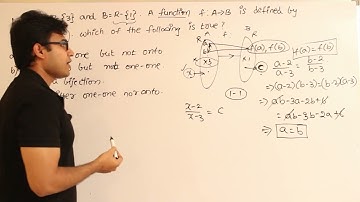 {3} and B=R-{1}. A function f:A→B is defined by
which of the following is true?
one but not onto
but not one-one
bijection
one-one nor onto
R A f B R
f(a), f(b)
f(a) = f(b)
a-2/a-3 = b-2/b-3
⇒(a-2)(b-3)=(b-2)(a-3)
⇒ab-3a-2b+6
=ab-3b-2a+6
⇒ a=b
x-2/x-3 = C
1-1